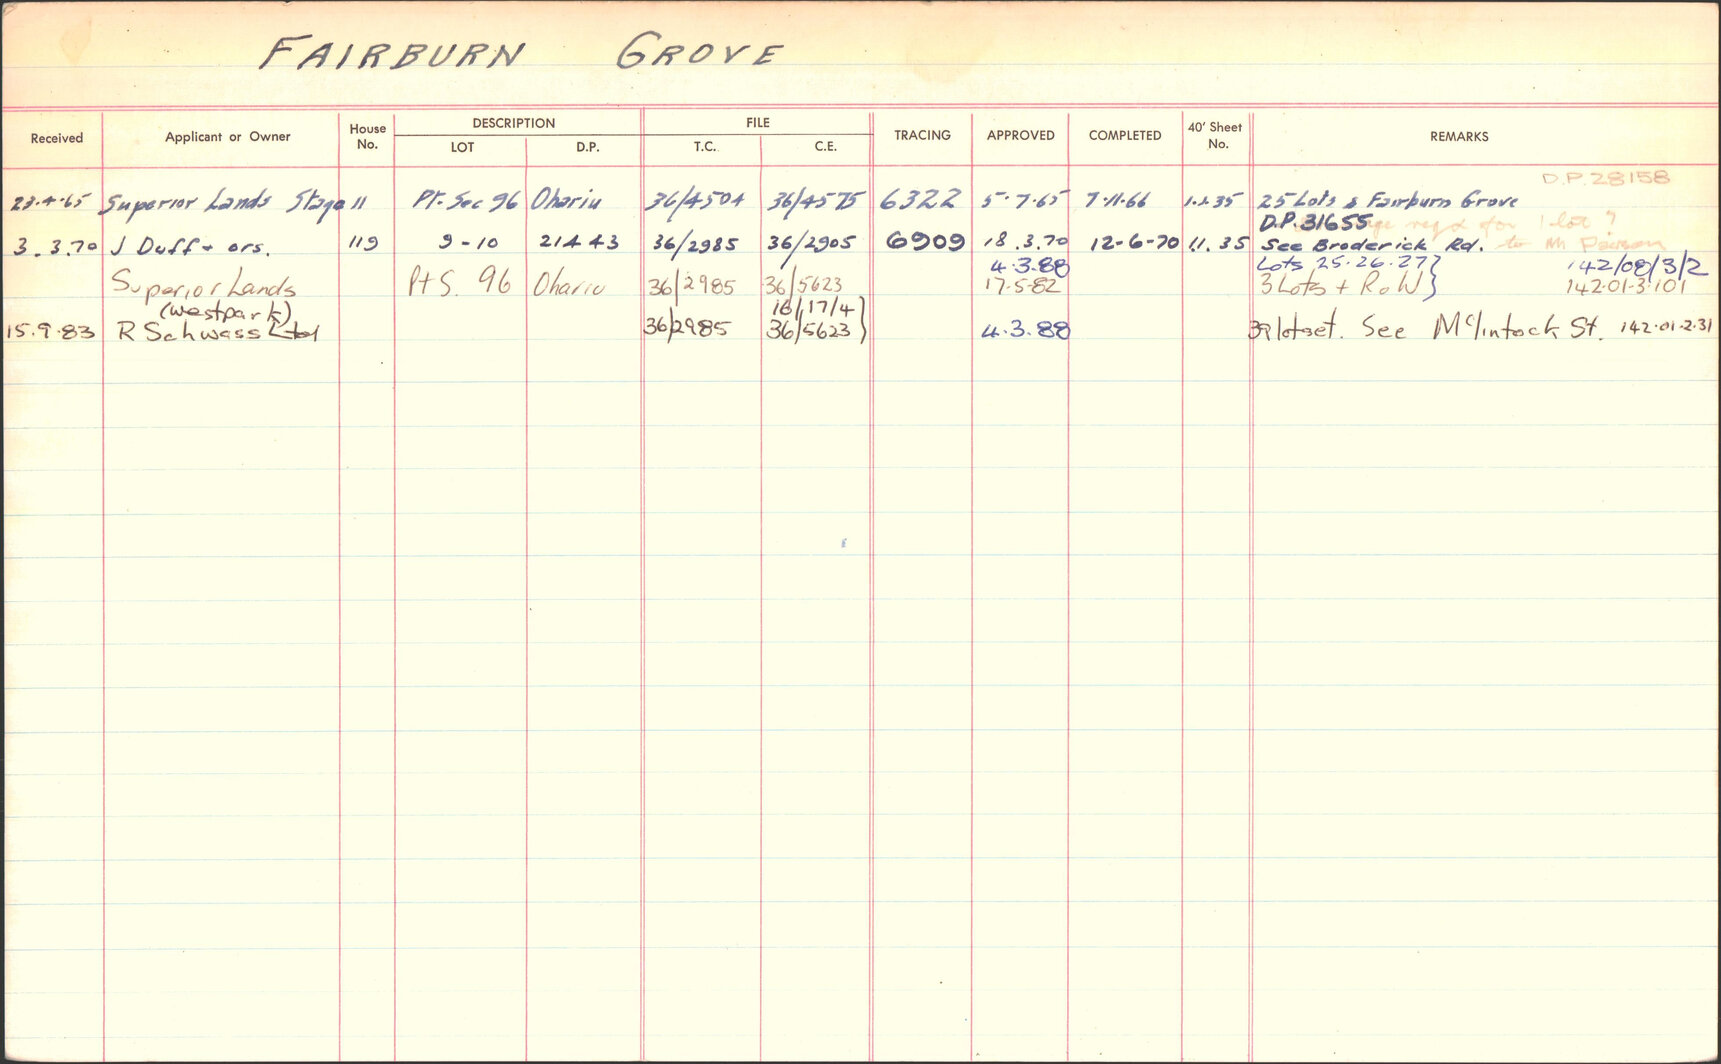 FAIRBURN GROVE
Received Applicant or Owner House No. DESCRIPTION LOT D.P. FILE T.C. C.E. TRACING APPROVED COMPLETED 40' Sheet No. REMARKS
D.P. 28158
23.4.65 Superior Lands Stage 11 Pt. Sec 96 Ohariu 36/4504 36/4575 6322 5.7.65 7.11.66 1.1.35 25 Lots & Fairburn Grove
D.P. 31655 reqd for 1 lot ?
3.3.70 J Duff & ors. 119 9-10 21443 36/2985 36/2905 6909 18.3.70 12-6-70 11.35 See Broderick Rd. to Mr
4.3.88 Lots 25.26.27} 142/08/3/2
Superior Lands Pt S. 96 Ohariu 36/2985 36/5623 17.5.82 3 Lots + RoW} 142.01.3.101
(Westpark) 18/17/4}
15.9.83 R Schwass Ltd 36/2985 36/5623} 4.3.88 39 lotset. See McLintock St. 142.01.2.31